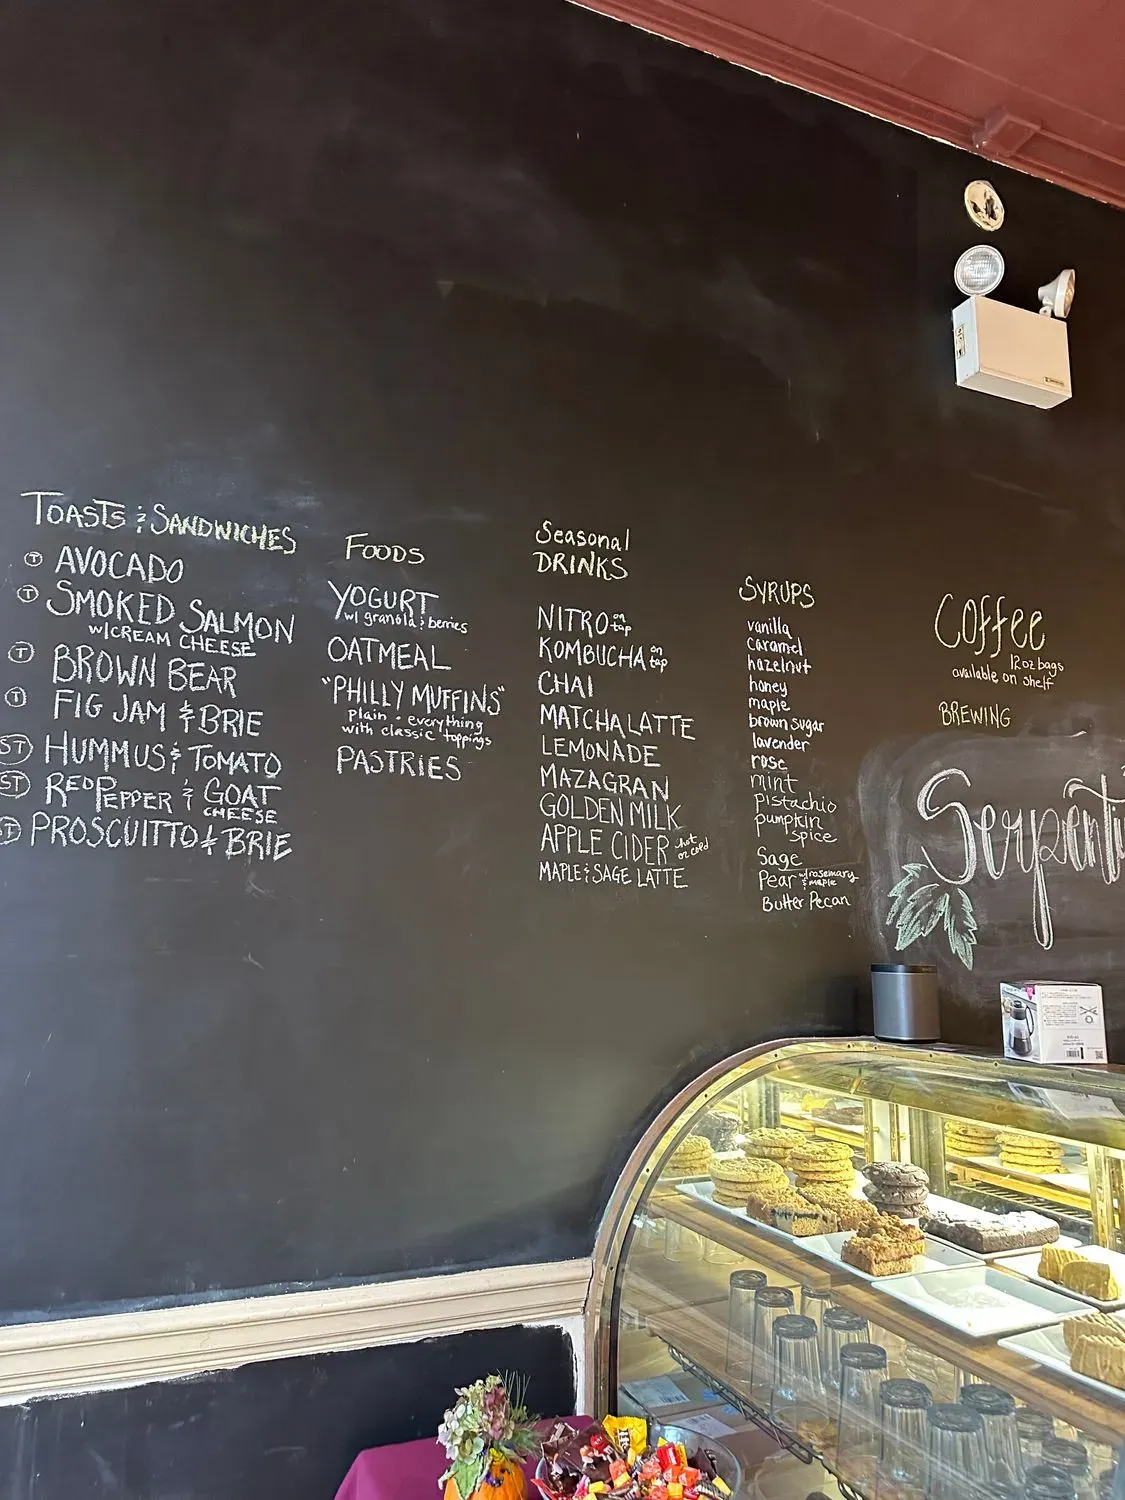 TOASTS & SANDWICHES
Ⓣ AVOCADO
Ⓣ SMOKED SALMON
w/CREAM CHEESE
Ⓣ BROWN BEAR
Ⓣ FIG JAM & BRIE
ST HUMMUS & TOMATO
ST RED PEPPER & GOAT
CHEESE
PROSCUITTO & BRIE
FOODS
YOGURT
w/ granola & berries
OATMEAL
"PHILLY MUFFINS"
plain · everything
with classic toppings
PASTRIES
Seasonal
DRINKS
NITRO on tap
KOMBUCHA on tap
CHAI
MATCHA LATTE
LEMONADE
MAZAGRAN
GOLDEN MILK
APPLE CIDER hot or cold
MAPLE & SAGE LATTE
SYRUPS
vanilla
caramel
hazelnut
honey
maple
brown sugar
lavender
rose
mint
pistachio
pumpkin
spice
Sage
Pear w/rosemary & maple
Butter Pecan
Coffee
12oz bags
available on shelf
BREWING